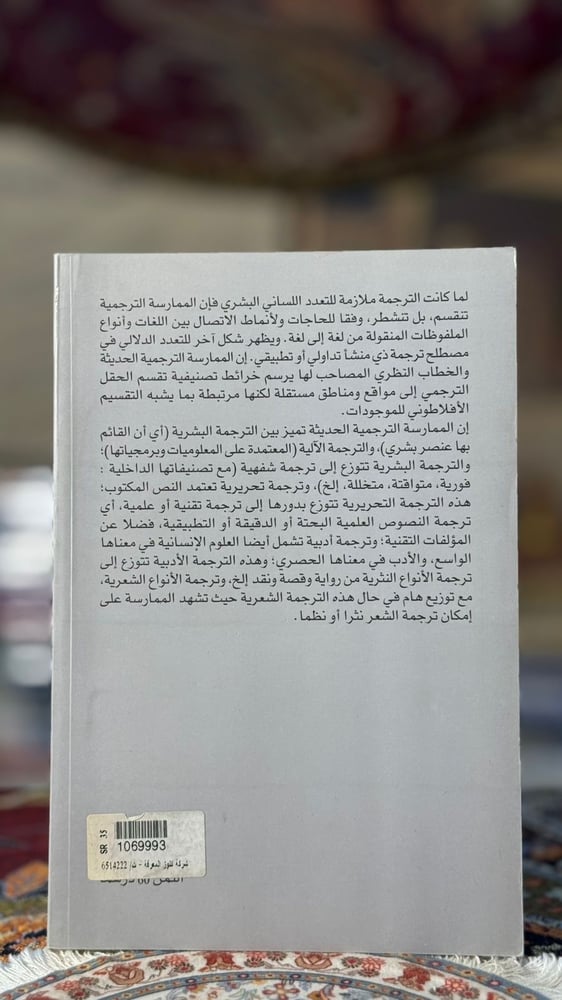 لما كانت الترجمة ملازمة للتعدد اللساني البشري فإن الممارسة الترجمية
تنقسم، بل تتشطر، وفقا للحاجات ولأنماط الاتصال بين اللغات وأنواع
الملفوظات المنقولة من لغة إلى لغة. ويظهر شكل آخر للتعدد الدلالي في
مصطلح ترجمة ذي منشأ تداولي أو تطبيقي. إن الممارسة الترجمية الحديثة
والخطاب النظري المصاحب لها يرسم خرائط تصنيفية تقسم الحقل
الترجمي إلى مواقع ومناطق مستقلة لكنها مرتبطة بما يشبه التقسيم
الأفلاطوني للموجودات.
إن الممارسة الترجمية الحديثة تميز بين الترجمة البشرية (أي أن القائم
بها عنصر بشري)، والترجمة الآلية (المعتمدة على المعلوميات وبرمجياتها)؛
والترجمة البشرية تتوزع إلى ترجمة شفهية (مع تصنيفاتها الداخلية :
فورية، متواقتة، متخللة، إلخ)، وترجمة تحريرية تعتمد النص المكتوب؛
هذه الترجمة التحريرية تتوزع بدورها إلى ترجمة تقنية أو علمية، أي
ترجمة النصوص العلمية البحتة أو الدقيقة أو التطبيقية، فضلا عن
المؤلفات التقنية؛ وترجمة أدبية تشمل أيضا العلوم الإنسانية في معناها
الواسع، والأدب في معناها الحصري؛ وهذه الترجمة الأدبية تتوزع إلى
ترجمة الأنواع النثرية من رواية وقصة ونقد إلخ، وترجمة الأنواع الشعرية،
مع توزيع هام في حال هذه الترجمة الشعرية حيث تشهد الممارسة على
إمكان ترجمة الشعر نثرا أو نظما.
SR 35
1069993
شركة كنوز المعرفة - ت/ 6514222
الثمن 60 درهما